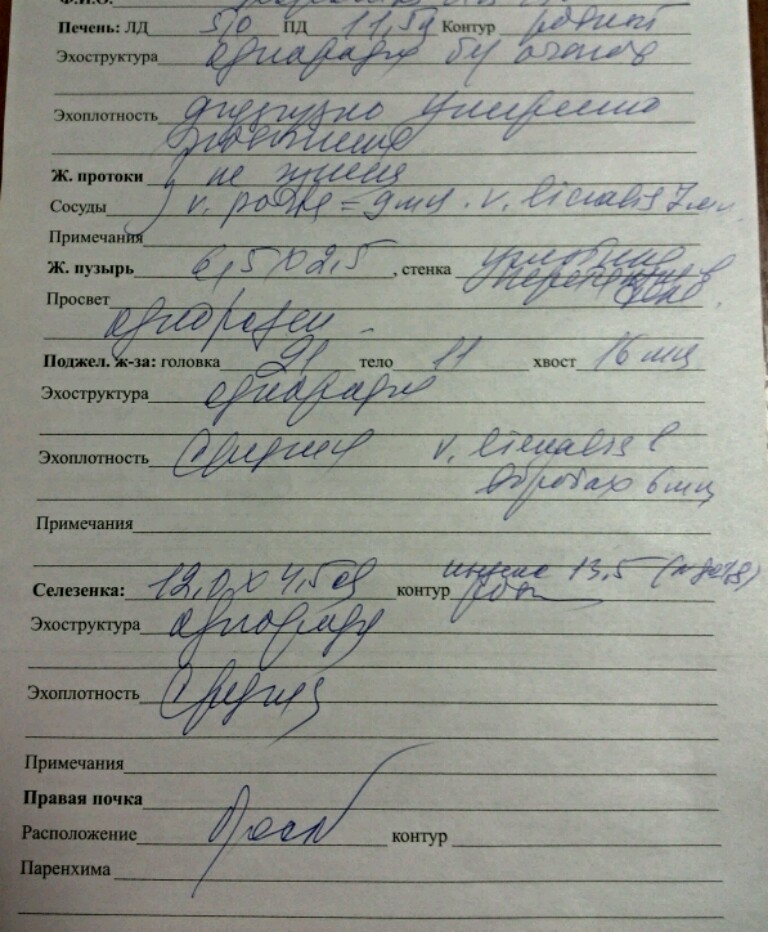 Ф.И.О.
Печень: ЛД 5,0 ПД 11,5 Контур ровный
Эхоструктура однородн
Эхоплотность диффузно умеренно
повышена
Ж. протоки не
Сосуды v. portae = 9 мм. v. lienalis 7 мм.
Примечания
Ж. пузырь 6,5 х 2,5, стенка уплотнена
Просвет
однороден
Поджел. ж-за: головка 21 тело 11 хвост 16 мм
Эхоструктура однородн
Эхоплотность средняя v. lienalis в
воротах 6 мм
Примечания
индекс 13,5
Селезенка: 12,0 х 4,5 контур ровн
Эхоструктура однородн
Эхоплотность средняя
Примечания
Правая почка
Расположение контур
Паренхима